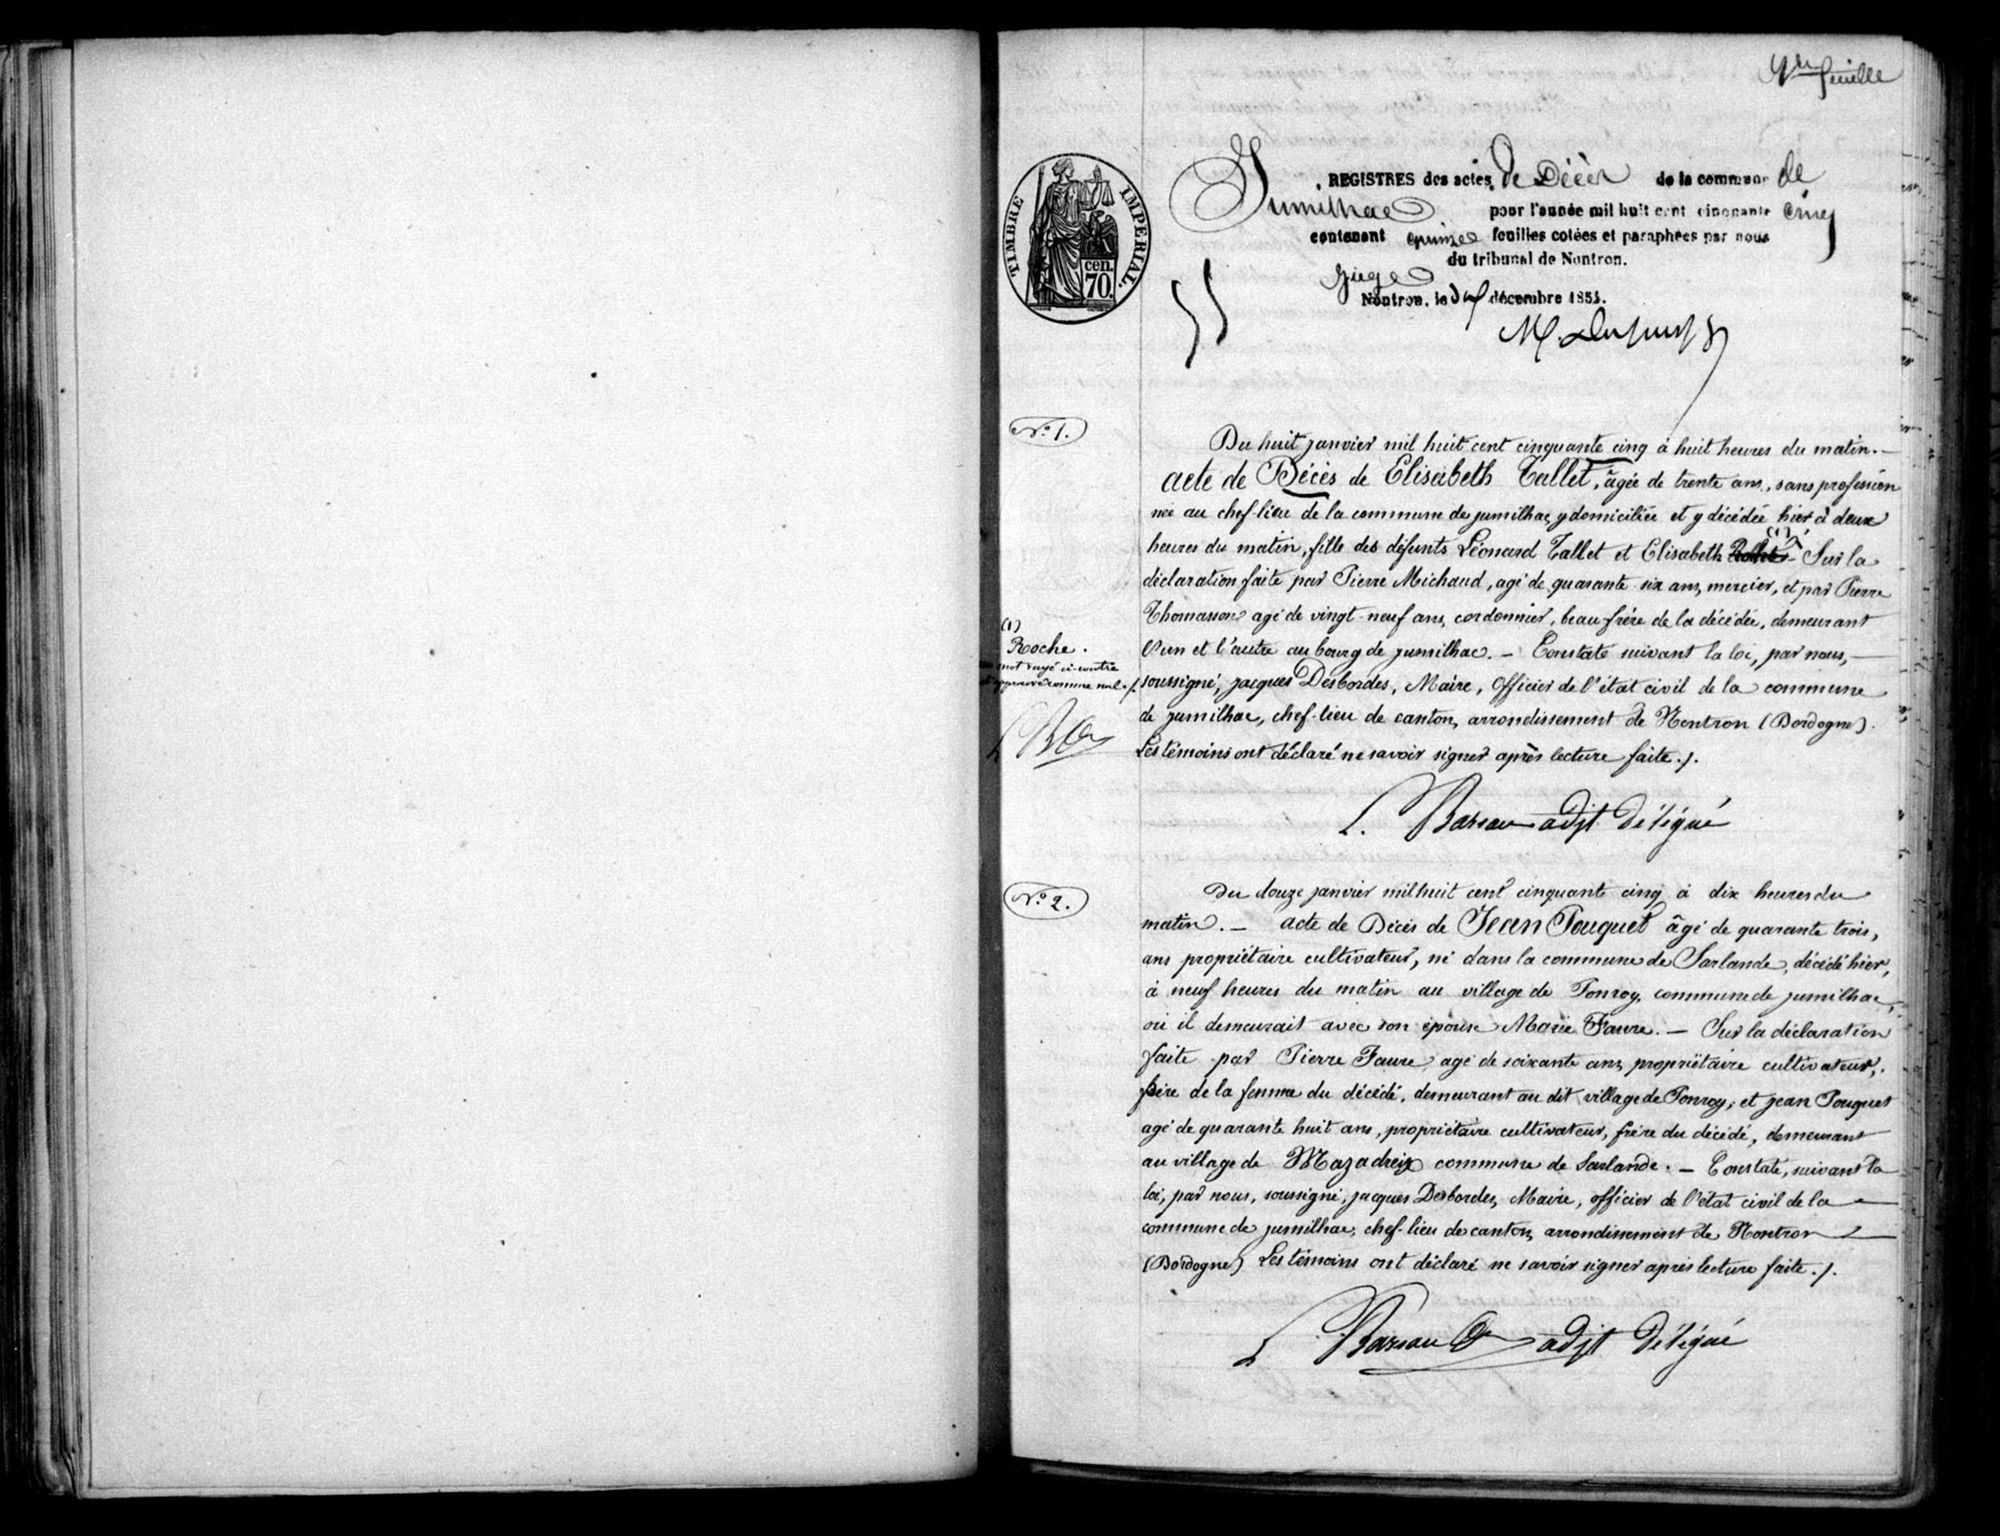 1re feuille
TIMBRE IMPERIAL.
cen.
70.
REGISTRES des actes de Décès de la commune de
Jumilhac pour l'année mil huit cent cinquante cinq
contenant quinze feuilles cotées et paraphées par nous
juge du tribunal de Nontron.
Nontron, le décembre 1854.
N.o 1.
Du huit janvier mil huit cent cinquante cinq à huit heures du matin. —
acte de Décès de Elisabeth Tallet, âgée de trente ans, sans profession
née au chef-lieu de la commune de jumilhac, y domiciliée et y décédée hier à deux
heures du matin, fille des défunts Léonard Tallet et Elisabeth (1) Sur la
déclaration faite par Pierre Michaud, agé de quarante six ans, mercier, et par Pierre
Thomasson agé de vingt-neuf ans, cordonnier, beau frère de la décédée, demeurant
l'un et l'autre au bourg de jumilhac. — Constaté suivant la loi, par nous, —
soussigné, jacques Desbordes, Maire, officier de l'état civil de la commune
de jumilhac, chef-lieu de canton, arrondissement de Nontron (Dordogne).
Les témoins ont déclaré ne savoir signer après lecture faite ./.
(1)
Roche.
mot rayé ci-contre
approuvé comme nul ./.
L. adjt Délégué
N.o 2.
Du douze janvier mil huit cent cinquante cinq à dix heures du
matin. — acte de Décès de Jean Pouquet âgé de quarante trois,
ans propriétaire cultivateur, né dans la commune de Sarlande, décédé hier,
à neuf heures du matin au village de Ponroy, commune de jumilhac,
où il demeurait avec son épouse Marie Faure. — Sur la déclaration
faite par Pierre Faure, agé de soixante ans, propriétaire cultivateur,
frère de la femme du décédé, demeurant au dit village de Ponroy, et jean Pouquet
agé de quarante huit ans, propriétaire cultivateur, frère du décédé, demeurant
au village de Mazadreix commune de Sarlande. — Constaté, suivant la
loi, par nous, soussigné, jacques Desbordes, Maire, officier de l'état civil de la
commune de jumilhac, chef-lieu de canton, arrondissement de Nontron
(Dordogne) Les témoins ont déclaré ne savoir signer après lecture faite ./.
L adjt Délégué